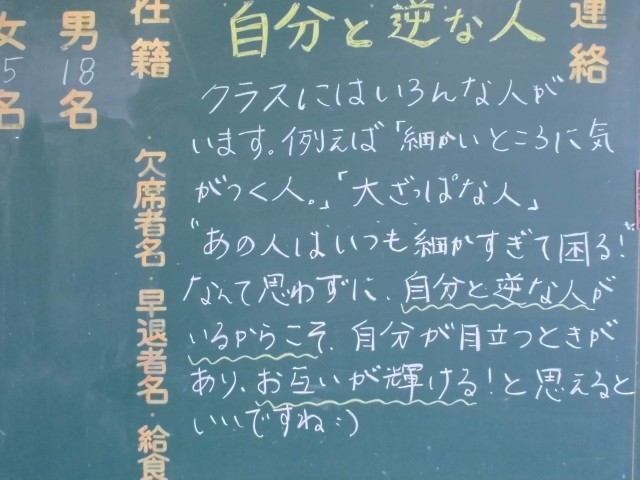 連絡
自分と逆な人
クラスにはいろんな人が
います。例えば「細かいところに気
がつく人。」「大ざっぱな人」
"あの人はいつも細かすぎて困る!"
なんて思わずに、自分と逆な人が
いるからこそ、自分が目立つときが
あり、お互いが輝ける!と思えると
いいですね:)
在籍
男18名
女5名
欠席者名・早退者名・給食